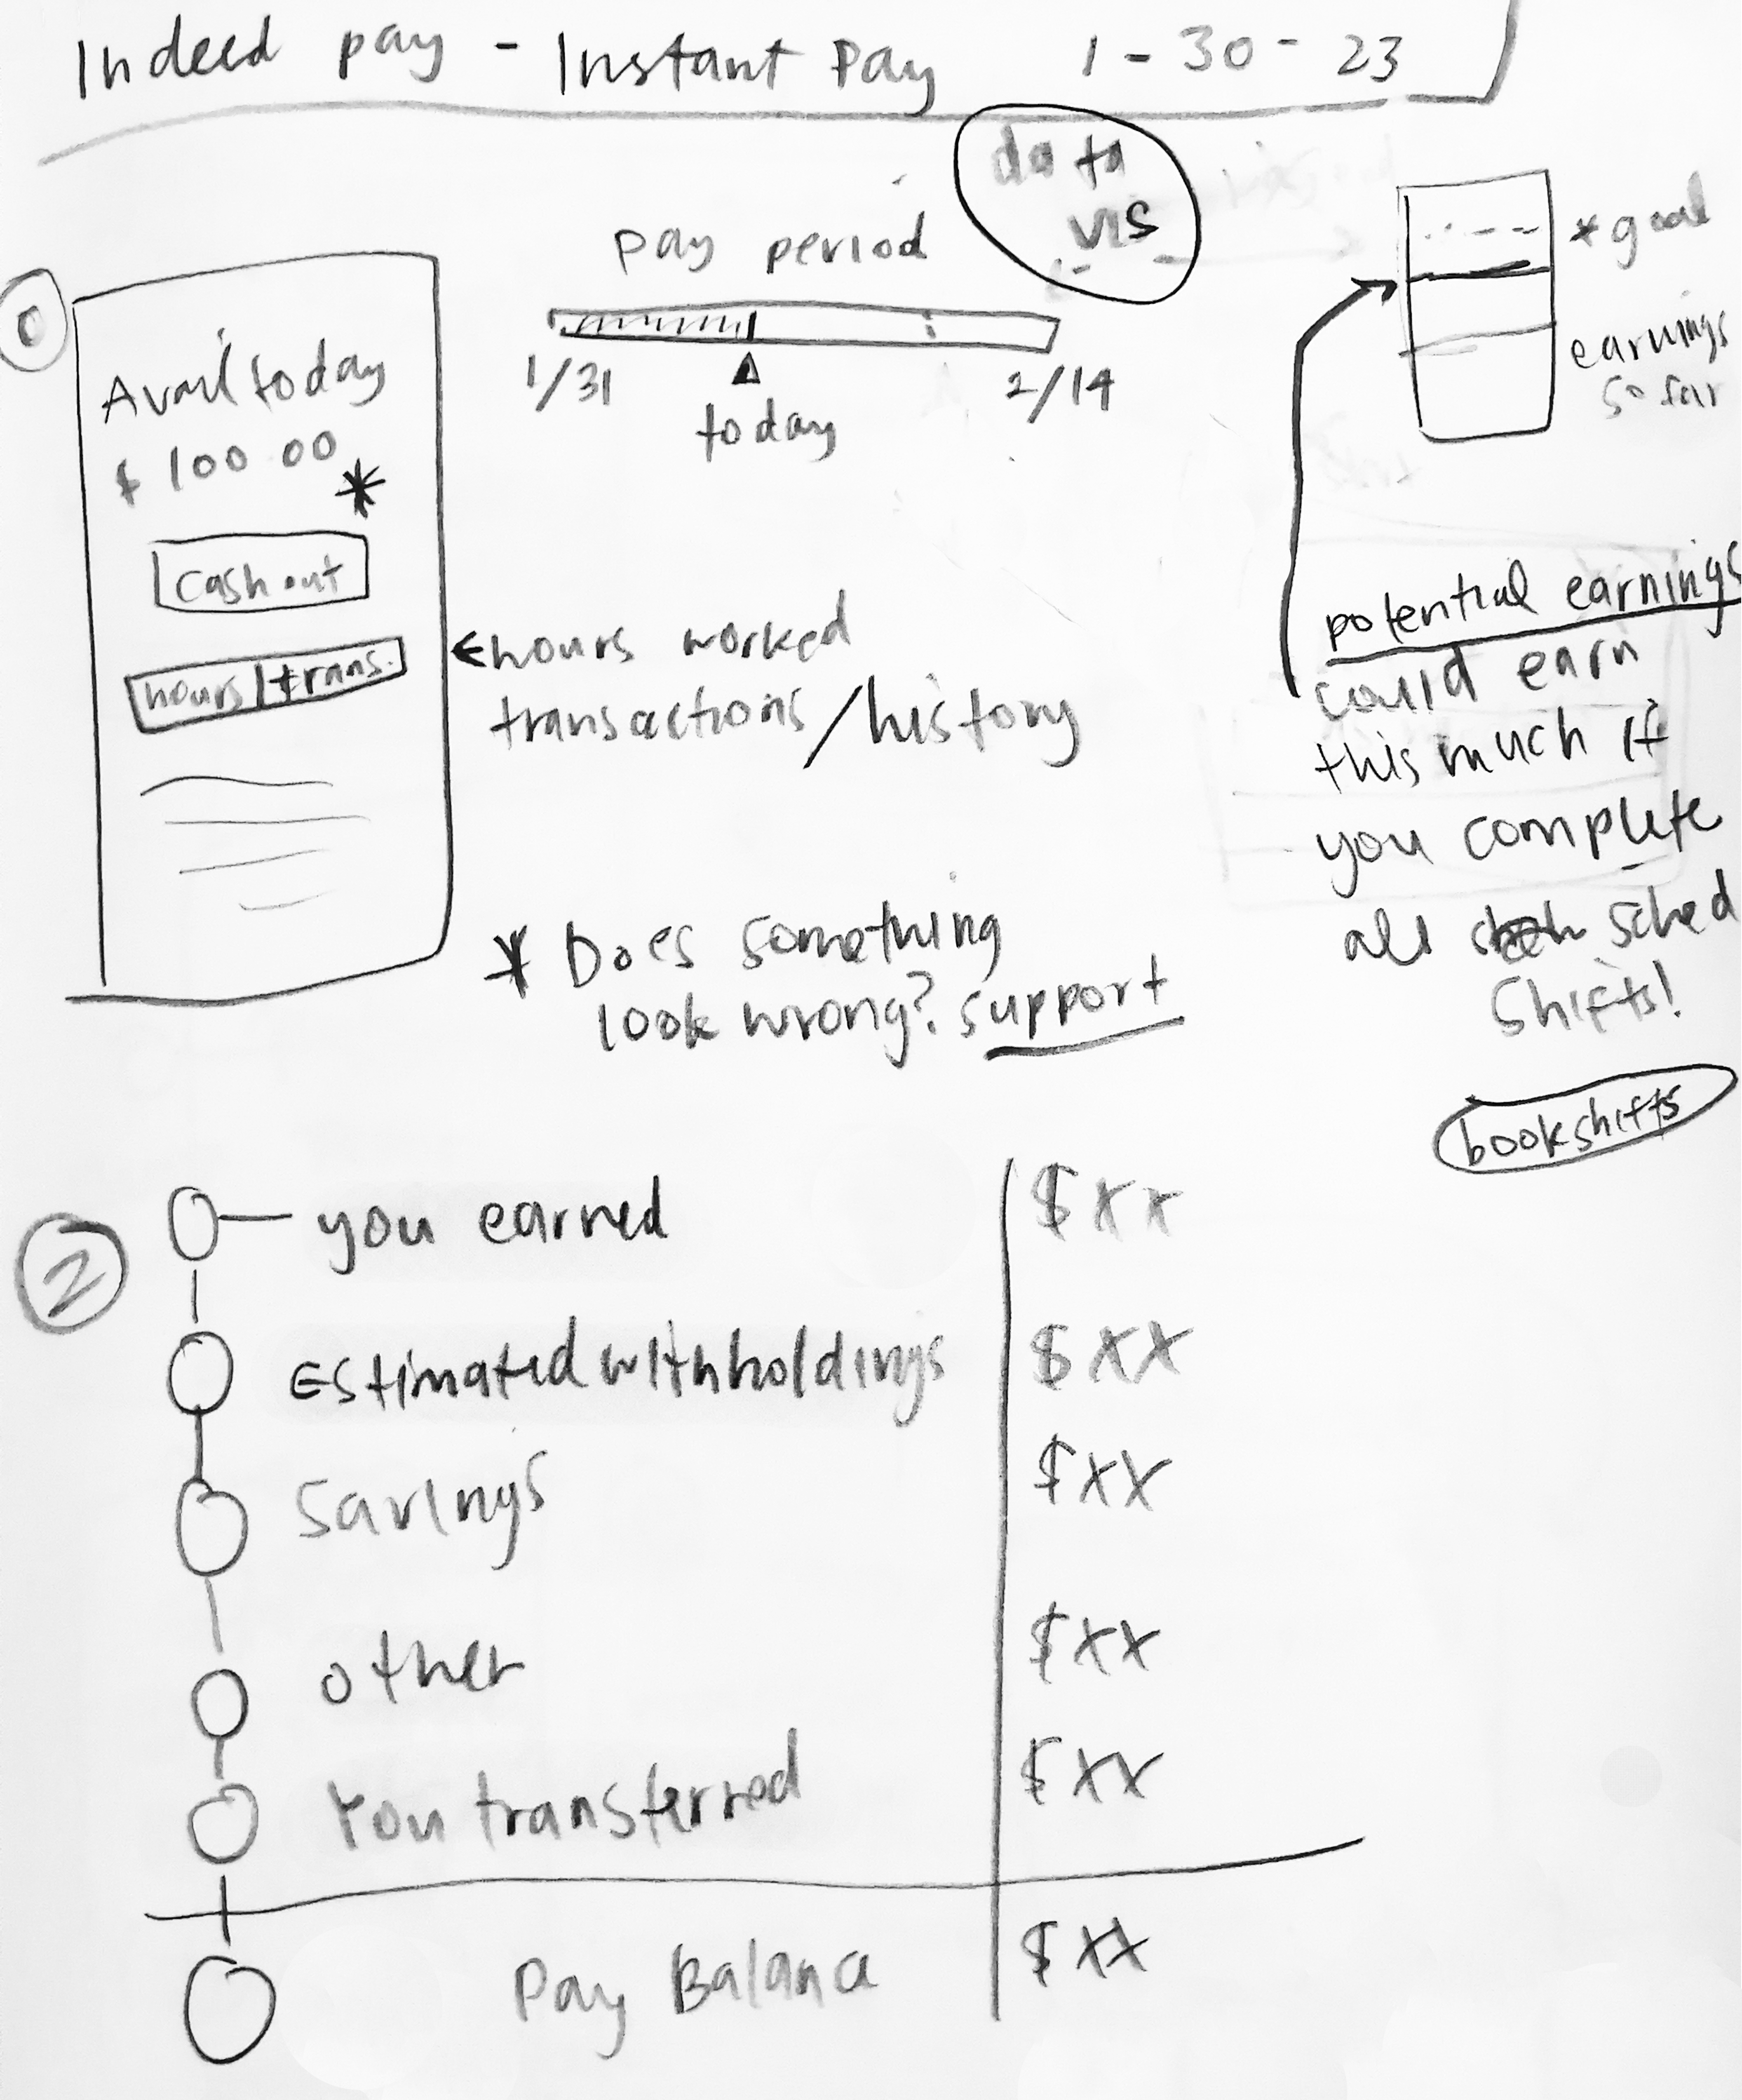 Indeed pay - Instant Pay 1-30-23
data
vis
pay period
1/31
today
2/14
*goal
earnings
so far
Avail today
$100.00
*
cash out
hours/trans.
←hours worked
transactions/history
* Does something
look wrong? support
potential earnings
could earn
this much if
you complete
all sched
shifts!
book shifts
2
you earned $XX
Estimated withholdings $XX
Savings $XX
other $XX
You transferred $XX
Pay Balance $XX